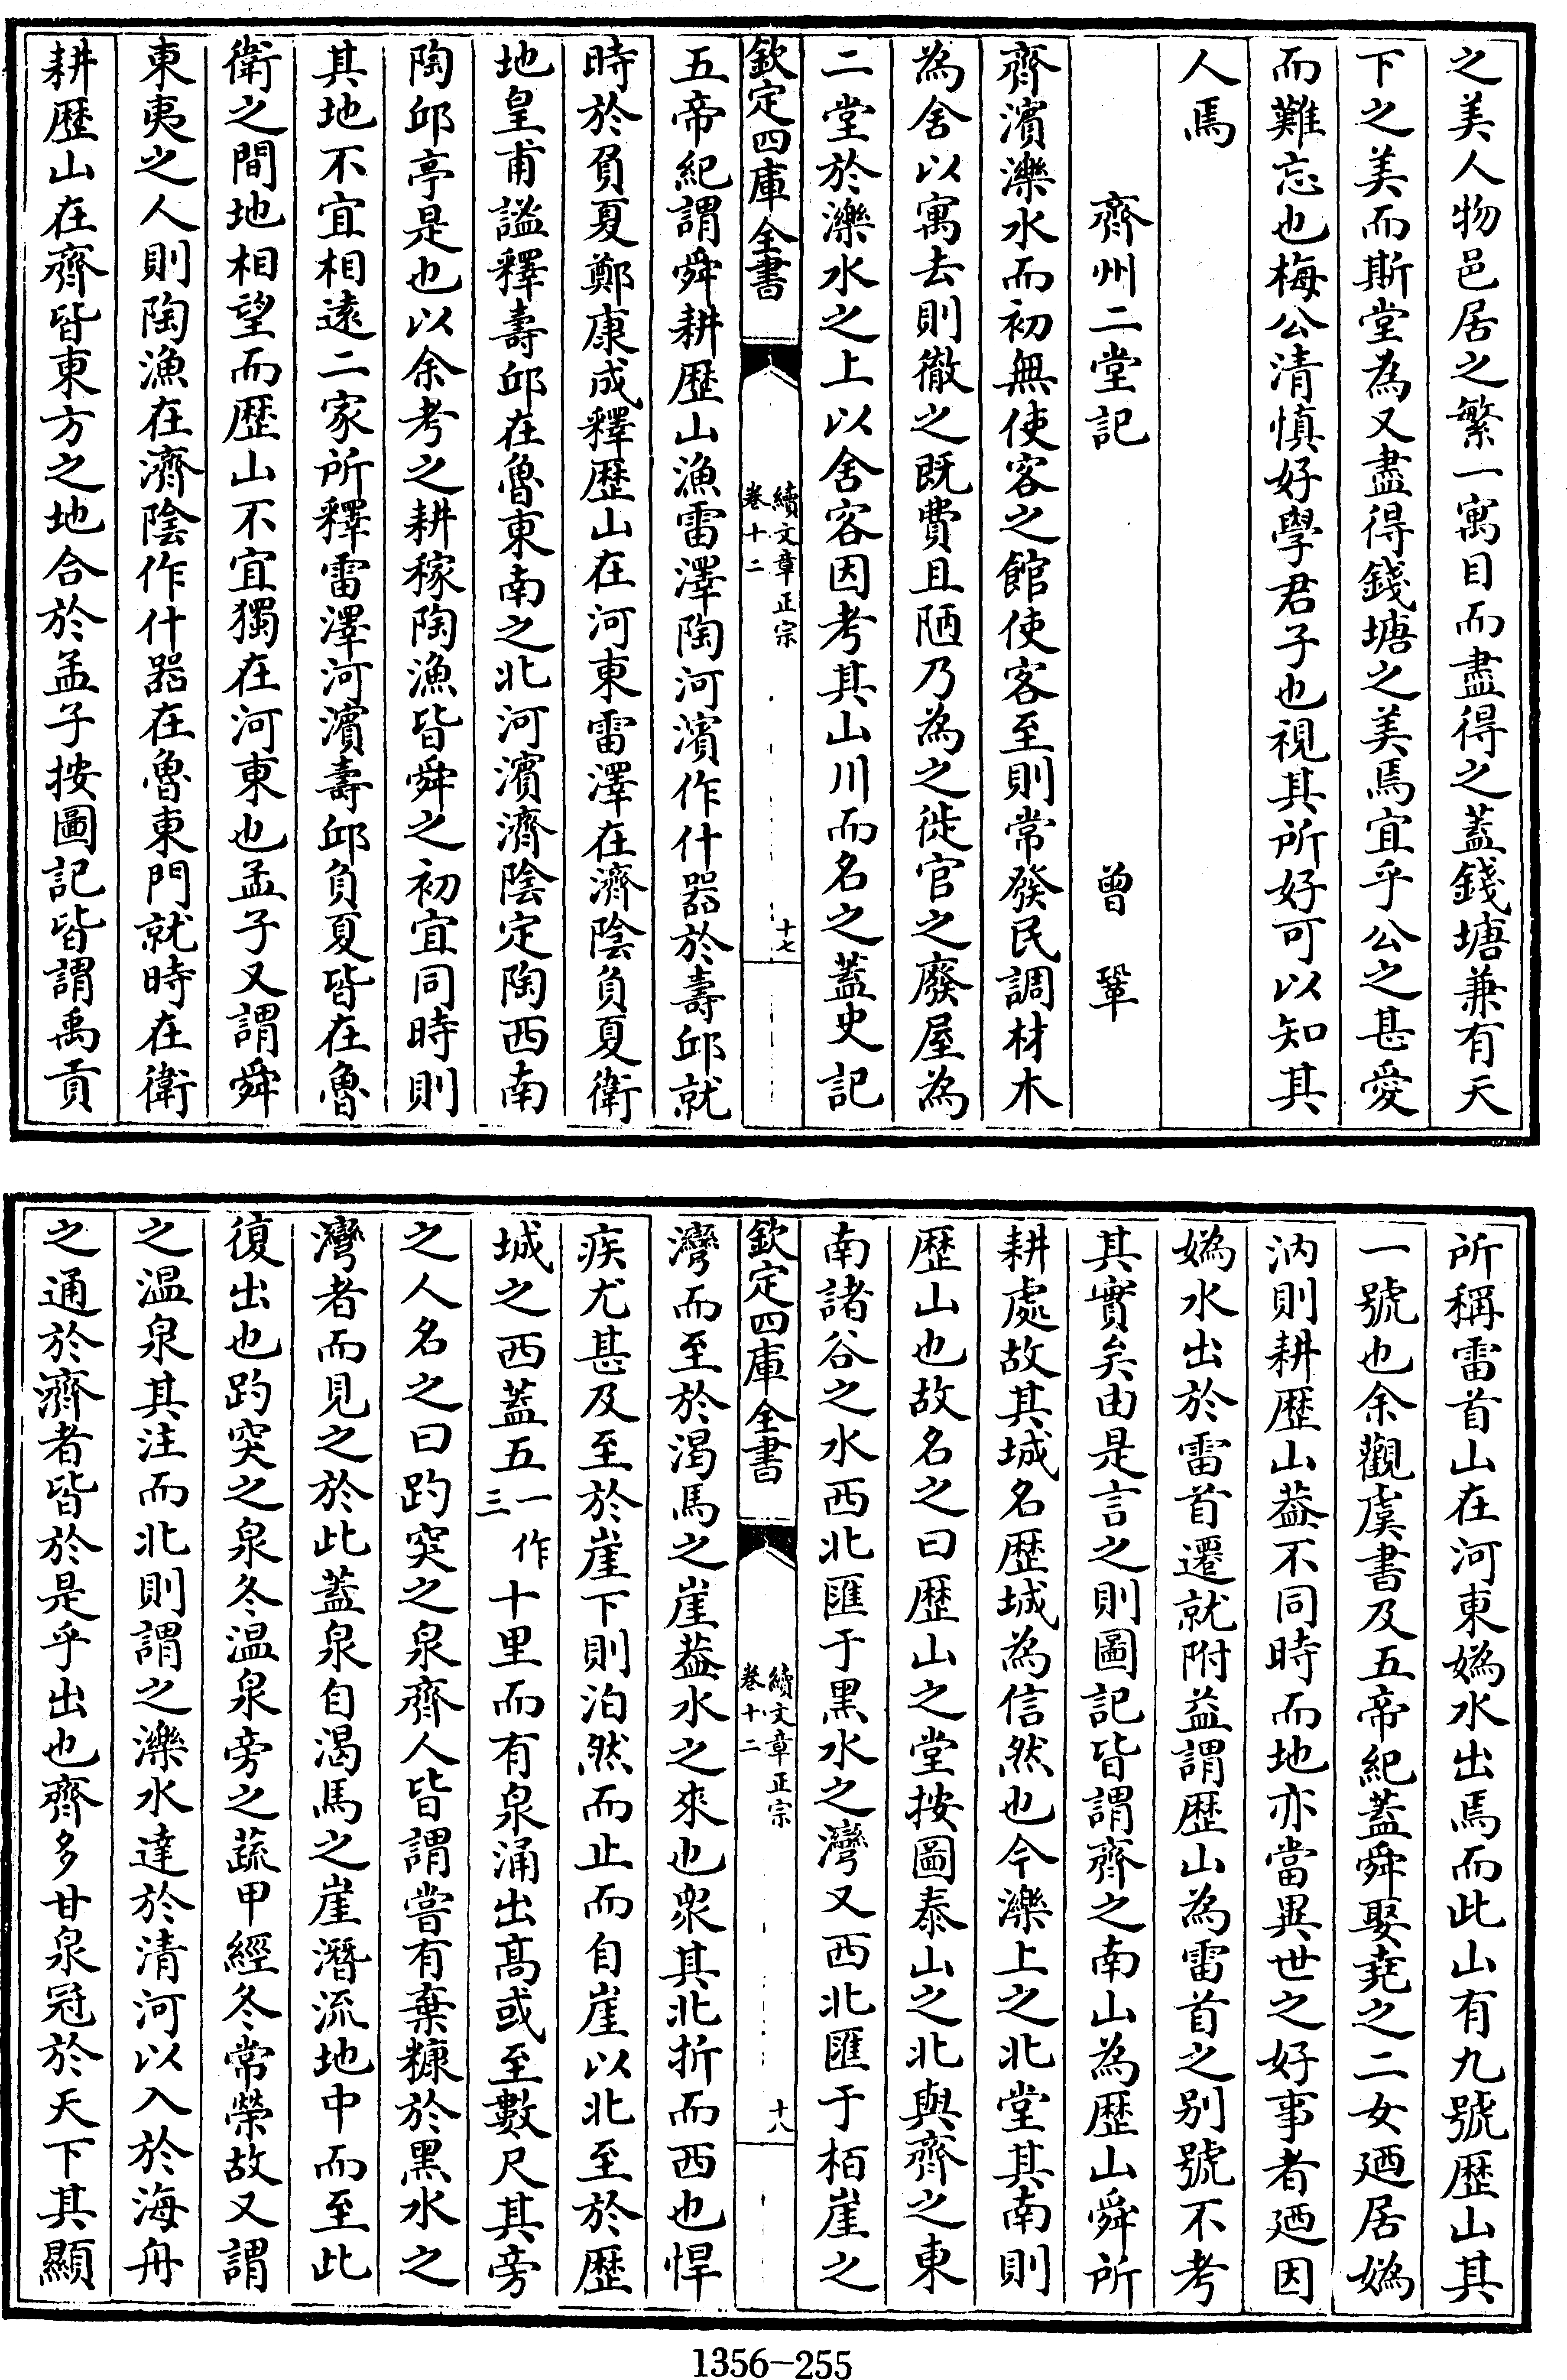 之美人物邑居之繁一寓目而盡得之蓋錢塘兼有天
下之美而斯堂為又盡得錢塘之美焉宜乎公之甚愛
而難忘也梅公清慎好學君子也視其所好可以知其
人焉
齊州二堂記 曾鞏
齊濱濼水而初無使客之館使客至則常發民調材木
為舍以寓去則徹之既費且陋乃為之徙官之廢屋為
二堂於濼水之上以舍客因考其山川而名之蓋史記
欽定四庫全書
續文章正宗
卷十二
十七
五帝紀謂舜耕歷山漁雷澤陶河濱作什器於壽邱就
時於負夏鄭康成釋歷山在河東雷澤在濟陰負夏衛
地皇甫謐釋壽邱在魯東南之北河濱濟陰定陶西南
陶邱亭是也以余考之耕稼陶漁皆舜之初宜同時則
其地不宜相遠二家所釋雷澤河濱壽邱負夏皆在魯
衛之間地相望而歷山不宜獨在河東也孟子又謂舜
東夷之人則陶漁在濟陰作什器在魯東門就時在衛
耕歷山在齊皆東方之地合於孟子按圖記皆謂禹貢
所稱雷首山在河東媯水出焉而此山有九號歷山其
一號也余觀虞書及五帝紀蓋舜娶堯之二女廼居媯
汭則耕歷山葢不同時而地亦當異世之好事者廼因
媯水出於雷首遷就附益謂歷山為雷首之别號不考
其實矣由是言之則圖記皆謂齊之南山為歷山舜所
耕處故其城名歷城為信然也今濼上之北堂其南則
歷山也故名之曰歷山之堂按圖泰山之北與齊之東
南諸谷之水西北匯于黑水之灣又西北匯于栢崖之
欽定四庫全書
續文章正宗
卷十二
十八
灣而至於渴馬之崖葢水之來也衆其北折而西也悍
疾尤甚及至於崖下則泊然而止而自崖以北至於歷
城之西蓋五一作三十里而有泉涌出高或至數尺其旁
之人名之曰趵突之泉齊人皆謂嘗有棄糠於黑水之
灣者而見之於此蓋泉自渴馬之崖潛流地中而至此
復出也趵突之泉冬温泉旁之蔬甲經冬常榮故又謂
之温泉其注而北則謂之濼水達於清河以入於海舟
之通於濟者皆於是乎出也齊多甘泉冠於天下其顯
1356-255